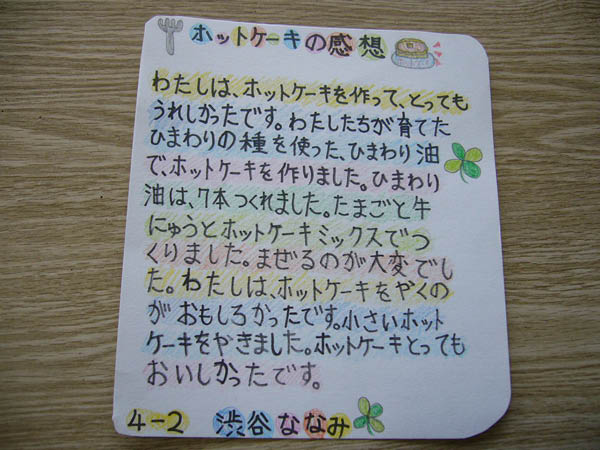 ホットケーキの感想
わたしは、ホットケーキを作って、とっても
うれしかったです。わたしたちが育てた
ひまわりの種を使った、ひまわり油
で、ホットケーキを作りました。ひまわり
油は、7本つくれました。たまごと牛
にゅうとホットケーキミックスでつ
くりました。まぜるのが大変でし
た。わたしは、ホットケーキをやくの
がおもしろかったです。小さいホット
ケーキをやきました。ホットケーキとっても
おいしかったです。
4-2 渋谷ななみ